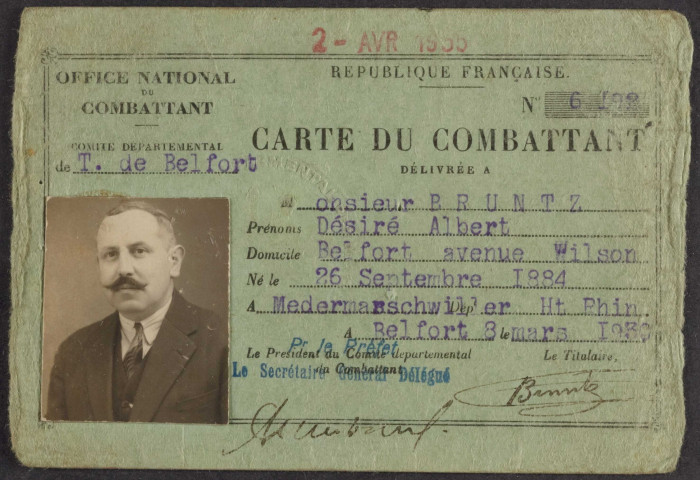 2 - AVR 1935
OFFICE NATIONAL
DU
COMBATTANT
COMITÉ DÉPARTEMENTAL
de T. de Belfort
RÉPUBLIQUE FRANÇAISE.
N°
CARTE DU COMBATTANT
DÉLIVRÉE A
Monsieur BRUNTZ
Prénoms Désiré Albert
Domicile Belfort avenue Wilson
Né le 26 Septembre I884
A Medermanschwiller Dép Ht Rhin
A Belfort 8 le mars
Pr le Préfet
Le Président du Comité départemental
du Combattant
Le Titulaire,
Le Secrétaire Général Délégué
Bruntz